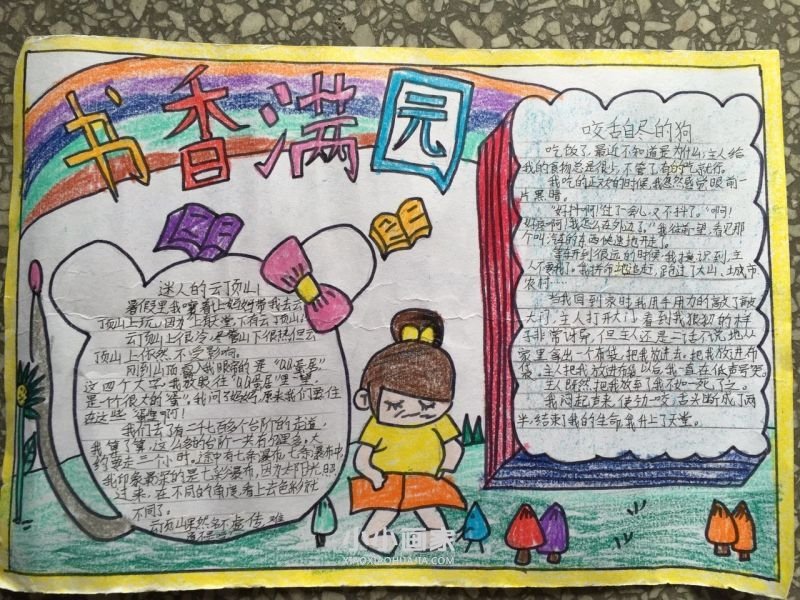 书香满园
迷人的云顶山
暑假里,我嚷着让妈妈带我去云
顶山上玩,因为上最党,下有云顶山。
云顶山上很冷,尽管山下很热但云
顶山上依然不受影响。
刚到山顶首入我眼帘的是“QQ蛋居”
这四个大字,我放眼往“QQ蛋居”里一望
是个很大的“蛋”,我问了妈妈,原来我们要住
在这些“蛋里”啊!
我们去了有二千七百多个台阶的走道,
我算了算,这么多的台阶一共有公里多,大
约要走三个小时,途中有七条瀑布,七条瀑布中
我印象最深的是七彩瀑布,因为太阳光照
过来,在不同的角度看上去色彩就
不同了。
云顶山果然名不虚传,难
咬舌自尽的狗
吃饭了,最近不知道是为什么,主人给
我的食物总是很少,不管了,有的吃就行。
我吃的正欢的时候,我忽然感觉眼前一
片黑暗。
“好抖啊!过了一会儿,又不抖了。”“啊!
好疼啊!我怎么在外边了。”我往前一望,看见那
个叫汽车的东西快速地开走了。
等车开到很远的时候,我才意识到,主
人不要我了。我拼命地追赶,跑过了大山、土城市
农村……
当我回到家时,我用手用力的敲了敲
大门,主人打开门,看到我狼狈的样
子非常讶异,但主人还是二话不说,地从
家里拿出一个布袋,把我放进去。把我放进布
袋,主人把我放进布袋以后我一直在低声哭
主人既然把我放车了,我不如一死了之。
我闷起声来,使劲一咬,舌头断成了两
半,结束了我的生命,我升上了天堂。
小小画家
XIAOXIAOHUAJIA.COM